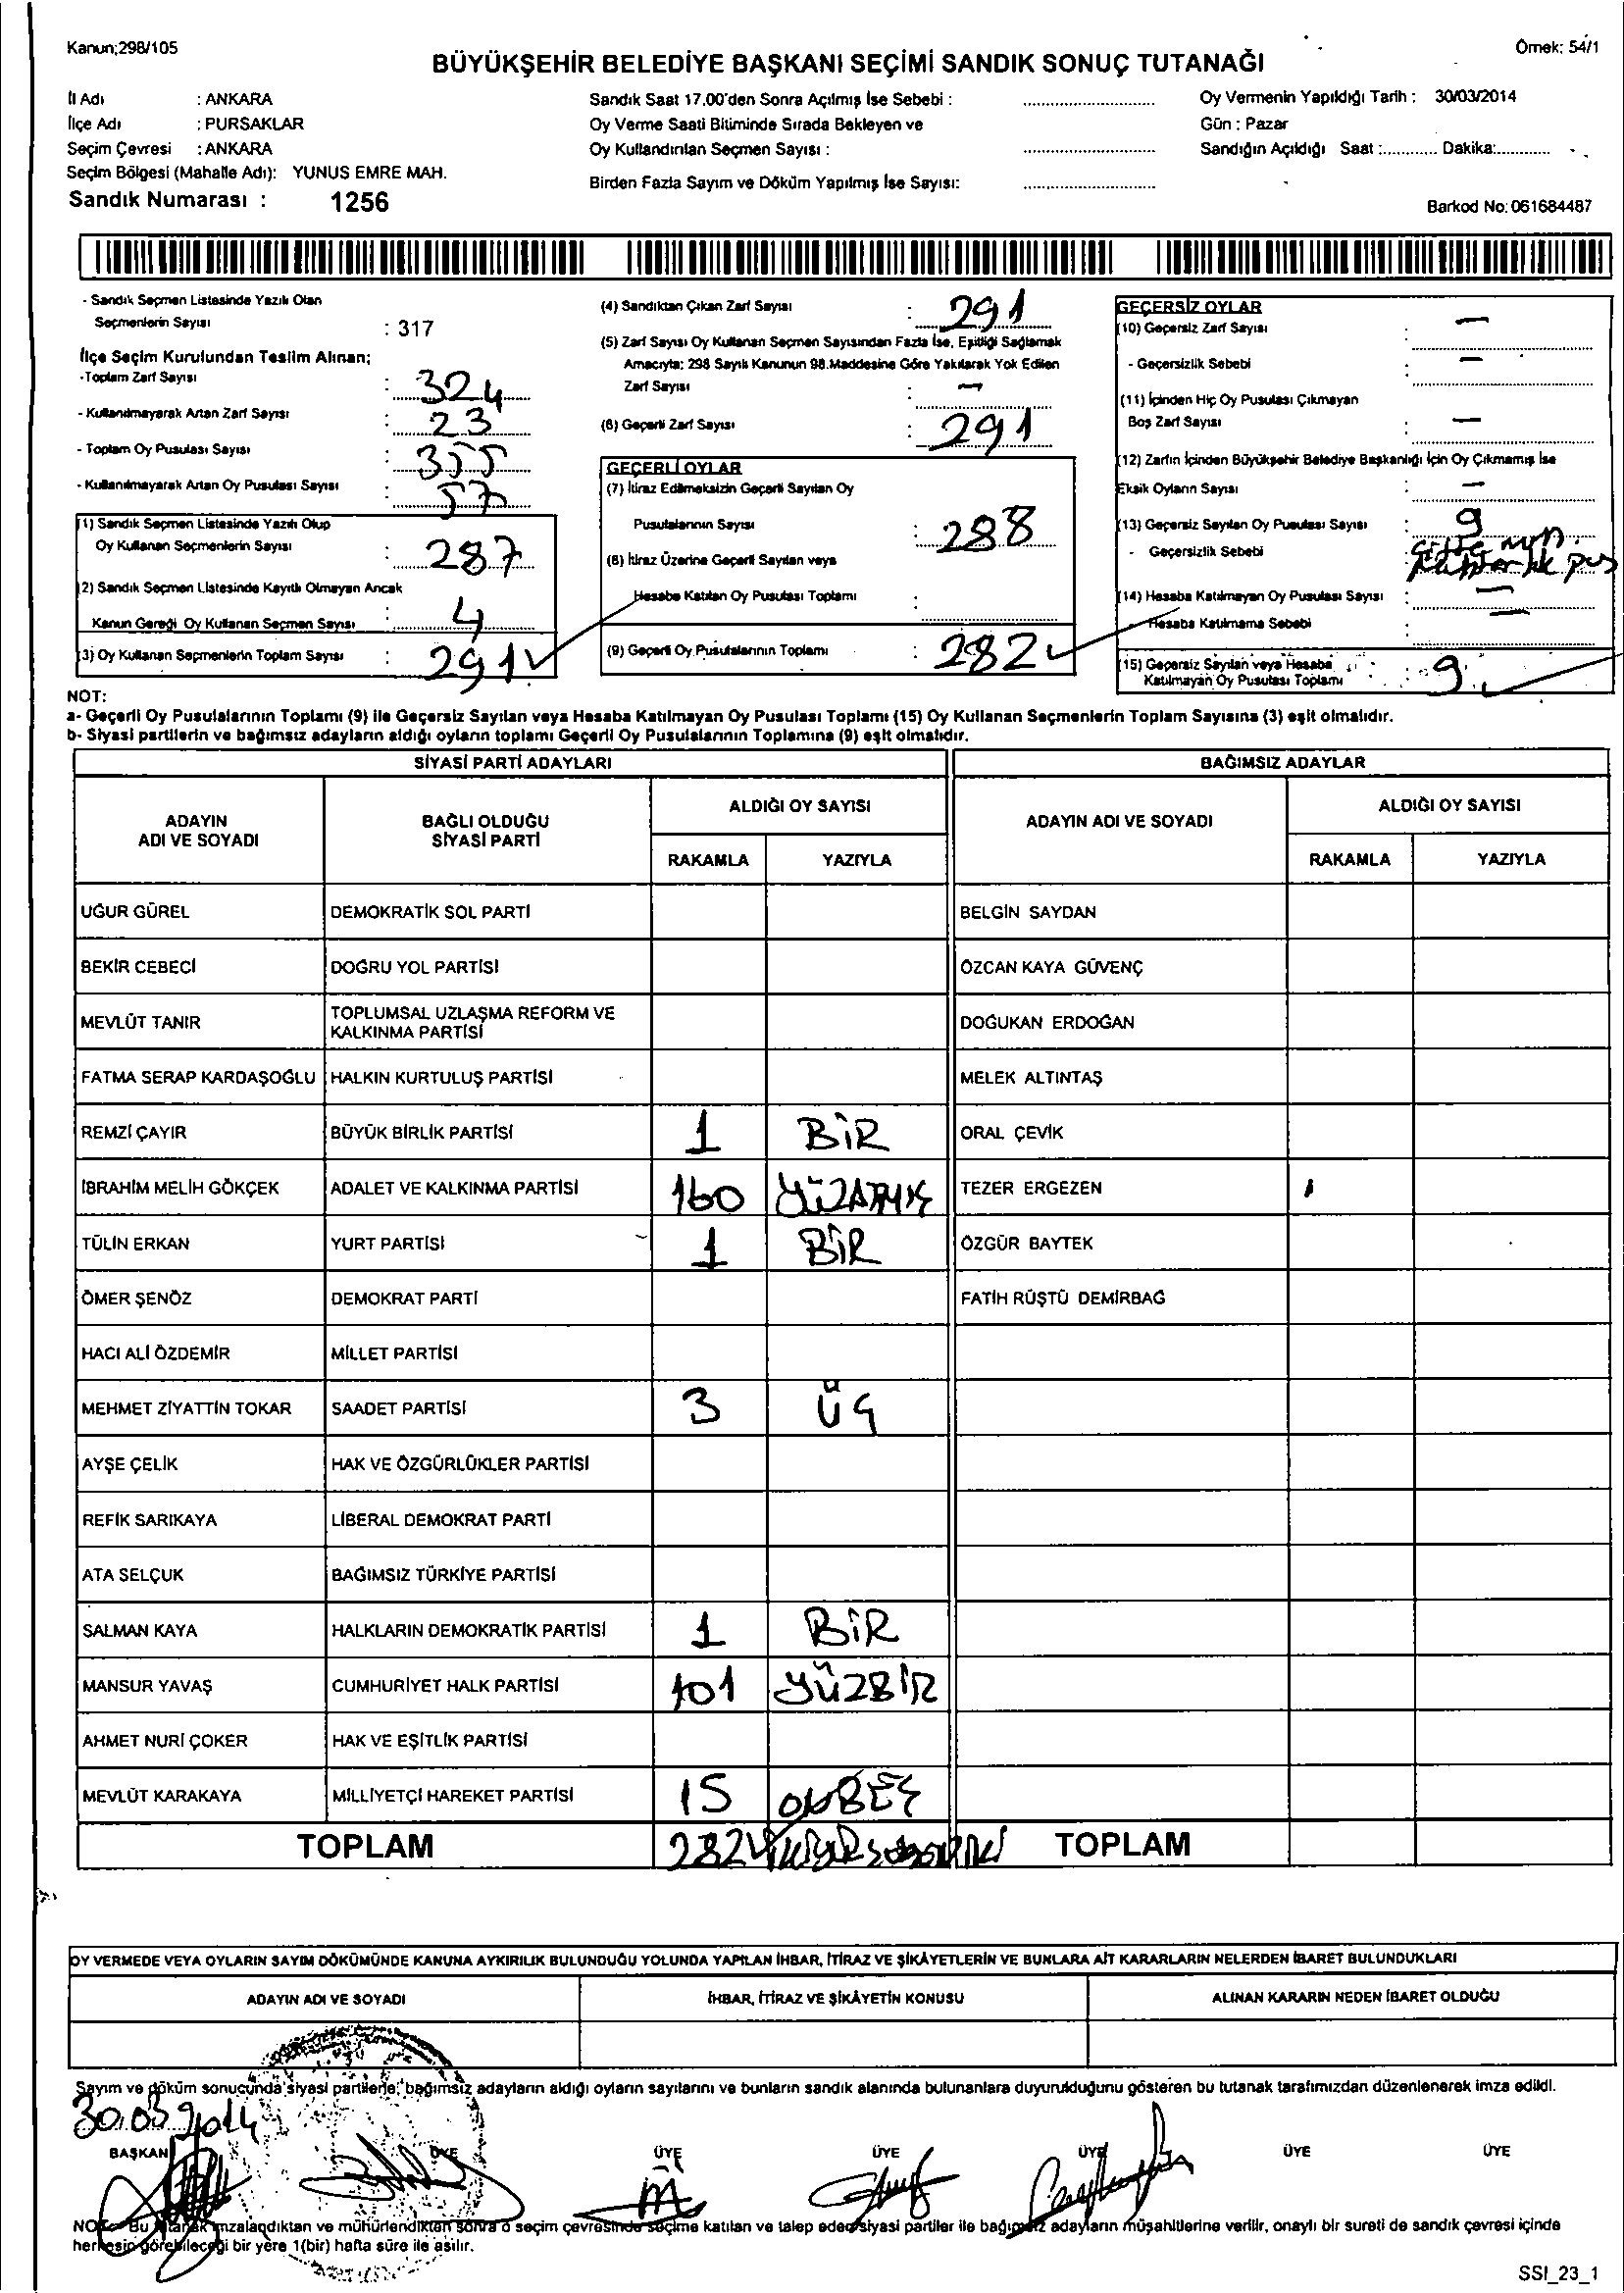 Kanun;298/105
Örnek: 54/1
BÜYÜKŞEHİR BELEDİYE BAŞKANI SEÇİMİ SANDIK SONUÇ TUTANAĞI
İl Adı : ANKARA
İlçe Adı : PURSAKLAR
Seçim Çevresi : ANKARA
Seçim Bölgesi (Mahalle Adı): YUNUS EMRE MAH.
Sandık Numarası : 1256
Sandık Saat 17.00'den Sonra Açılmış İse Sebebi :
Oy Verme Saati Bitiminde Sırada Bekleyen ve
Oy Kullandırılan Seçmen Sayısı :
Birden Fazla Sayım ve Döküm Yapılmış İse Sayısı:
Oy Vermenin Yapıldığı Tarih : 30/03/2014
Gün : Pazar
Sandığın Açıldığı Saat :............ Dakika:............
Barkod No: 061684487
- Sandık Seçmen Listesinde Yazılı Olan
Seçmenlerin Sayısı : 317
İlçe Seçim Kurulundan Teslim Alınan;
-Toplam Zarf Sayısı : 324
- Kullanılmayarak Artan Zarf Sayısı : 23
- Toplam Oy Pusulası Sayısı : 355
- Kullanılmayarak Artan Oy Pusulası Sayısı : 57
(1) Sandık Seçmen Listesinde Yazılı Olup
Oy Kullanan Seçmenlerin Sayısı : 287
(2) Sandık Seçmen Listesinde Kayıtlı Olmayan Ancak
Kanun Gereği Oy Kullanan Seçmen Sayısı : 4
(3) Oy Kullanan Seçmenlerin Toplam Sayısı : 291
(4) Sandıktan Çıkan Zarf Sayısı : 291
(5) Zarf Sayısı Oy Kullanan Seçmen Sayısından Fazla İse, Eşitliği Sağlamak
Amacıyla: 298 Sayılı Kanunun 98.Maddesine Göre Yakılarak Yok Edilen
Zarf Sayısı : —
(6) Geçerli Zarf Sayısı : 291
GEÇERLİ OYLAR
(7) İtiraz Edilmeksizin Geçerli Sayılan Oy
Pusulalarının Sayısı : 288
(8) İtiraz Üzerine Geçerli Sayılan veya
Hesaba Katılan Oy Pusulası Toplamı :
(9) Geçerli Oy Pusulalarının Toplamı : 282
GEÇERSİZ OYLAR
(10) Geçersiz Zarf Sayısı : —
- Geçersizlik Sebebi : —
(11) İçinden Hiç Oy Pusulası Çıkmayan
Boş Zarf Sayısı : —
(12) Zarfın İçinden Büyükşehir Belediye Başkanlığı İçin Oy Çıkmamış İse
Eksik Oyların Sayısı : —
(13) Geçersiz Sayılan Oy Pusulası Sayısı : 9
- Geçersizlik Sebebi :
(14) Hesaba Katılmayan Oy Pusulası Sayısı : —
- Hesaba Katılmama Sebebi : —
(15) Geçersiz Sayılan veya Hesaba
Katılmayan Oy Pusulası Toplamı : 9
NOT:
a- Geçerli Oy Pusulalarının Toplamı (9) ile Geçersiz Sayılan veya Hesaba Katılmayan Oy Pusulası Toplamı (15) Oy Kullanan Seçmenlerin Toplam Sayısına (3) eşit olmalıdır.
b- Siyasi partilerin ve bağımsız adayların aldığı oyların toplamı Geçerli Oy Pusulalarının Toplamına (9) eşit olmalıdır.
SİYASİ PARTİ ADAYLARI
BAĞIMSIZ ADAYLAR
ADAYIN
ADI VE SOYADI
BAĞLI OLDUĞU
SİYASİ PARTİ
ALDIĞI OY SAYISI
RAKAMLA YAZIYLA
ADAYIN ADI VE SOYADI
ALDIĞI OY SAYISI
RAKAMLA YAZIYLA
UĞUR GÜREL DEMOKRATİK SOL PARTİ BELGİN SAYDAN
BEKİR CEBECİ DOĞRU YOL PARTİSİ ÖZCAN KAYA GÜVENÇ
MEVLÜT TANIR TOPLUMSAL UZLAŞMA REFORM VE
KALKINMA PARTİSİ DOĞUKAN ERDOĞAN
FATMA SERAP KARDAŞOĞLU HALKIN KURTULUŞ PARTİSİ MELEK ALTINTAŞ
REMZİ ÇAYIR BÜYÜK BİRLİK PARTİSİ 1 BİR ORAL ÇEVİK
İBRAHİM MELİH GÖKÇEK ADALET VE KALKINMA PARTİSİ 160 YÜZATMIŞ TEZER ERGEZEN
TÜLİN ERKAN YURT PARTİSİ 1 BİR ÖZGÜR BAYTEK
ÖMER ŞENÖZ DEMOKRAT PARTİ FATİH RÜŞTÜ DEMİRBAĞ
HACI ALİ ÖZDEMİR MİLLET PARTİSİ
MEHMET ZİYATTİN TOKAR SAADET PARTİSİ 3 ÜÇ
AYŞE ÇELİK HAK VE ÖZGÜRLÜKLER PARTİSİ
REFİK SARIKAYA LİBERAL DEMOKRAT PARTİ
ATA SELÇUK BAĞIMSIZ TÜRKİYE PARTİSİ
SALMAN KAYA HALKLARIN DEMOKRATİK PARTİSİ 1 BİR
MANSUR YAVAŞ CUMHURİYET HALK PARTİSİ 101 YÜZBİR
AHMET NURİ ÇOKER HAK VE EŞİTLİK PARTİSİ
MEVLÜT KARAKAYA MİLLİYETÇİ HAREKET PARTİSİ 15 ONBEŞ
TOPLAM 282 TOPLAM
OY VERMEDE VEYA OYLARIN SAYIM DÖKÜMÜNDE KANUNA AYKIRILIK BULUNDUĞU YOLUNDA YAPILAN İHBAR, İTİRAZ VE ŞİKÂYETLERİN VE BUNLARA AİT KARARLARIN NELERDEN İBARET BULUNDUKLARI
ADAYIN ADI VE SOYADI İHBAR, İTİRAZ VE ŞİKÂYETİN KONUSU ALINAN KARARIN NEDEN İBARET OLDUĞU
Sayım ve döküm sonucunda siyasi partilerle, bağımsız adayların aldığı oyların sayılarını ve bunların sandık alanında bulunanlara duyurulduğunu gösteren bu tutanak tarafımızdan düzenlenerek imza edildi.
30.03.2014
BAŞKAN ÜYE ÜYE ÜYE ÜYE ÜYE ÜYE
NOT: Bu tutanak imzalandıktan ve mühürlendikten sonra o seçim çevresinde seçime katılan ve talep eden siyasi partiler ile bağımsız adayların müşahitlerine verilir, onaylı bir sureti de sandık çevresi içinde
herkesin görebileceği bir yere 1(bir) hafta süre ile asılır.
SSI_23_1